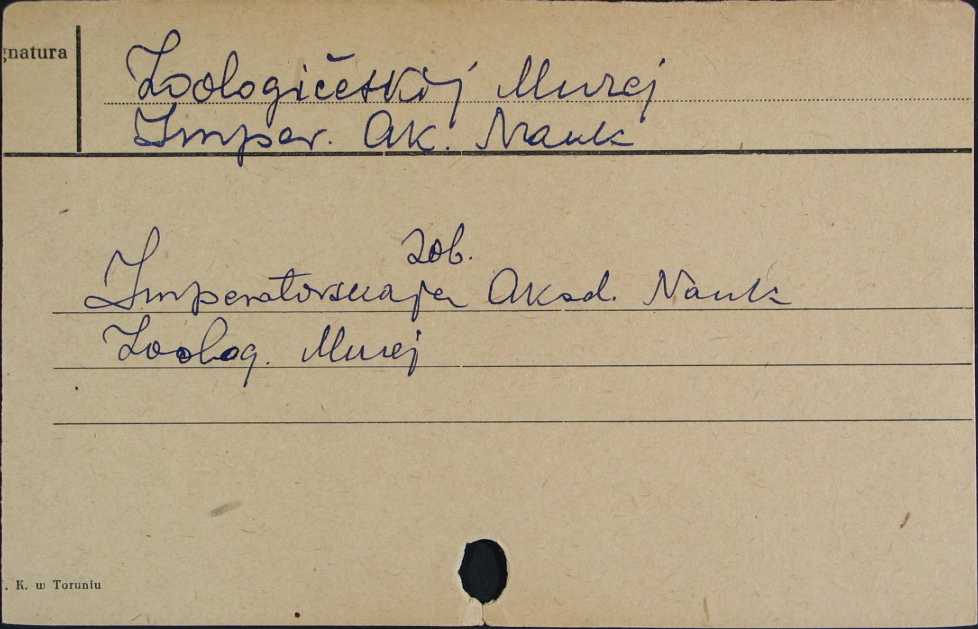 gnatura
Zoologičeskij Muzej
Imper. Ak. Nauk
zob.
Imperatorskaja Akad. Nauk
Zoolog. Muzej
. K. w Toruniu